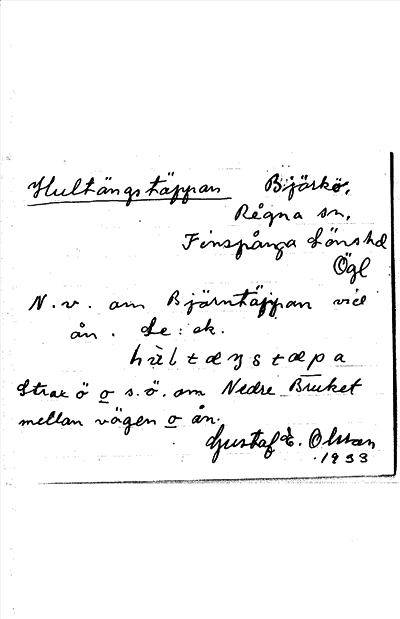 Hultängstäppan Björkö,
Regna sn,
Finspånga Länshd
Ögl
N. v. om Björntäppan vid
ån. Le: ek.
hùltæŋstæpa
Strax ö o s. ö. om Nedre Bruket
mellan vägen o ån.
Gustaf E. Olsson
1933